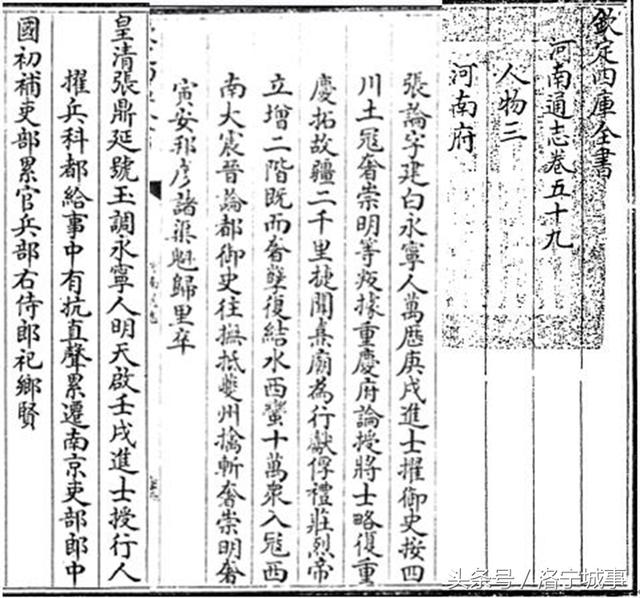 欽定四庫全書
河南通志卷五十九
人物三
河南府
張論字建白永寧人萬厯庚戌進士擢御史按四
川土冦奢崇明等叛據重慶府論授將士略復重
慶拓故疆二千里捷聞熹廟為行獻俘禮莊烈帝
立增二階既而奢孽復結水西蠻十萬衆入冦西
南大震晉論都御史往撫抵夔州擒斬奢崇明奢
寅安邦彦諸渠魁歸里卒
皇清張鼎延號玉調永寧人明天啟壬戌進士授行人
擢兵科都給事中有抗直聲累遷南京吏部郎中
國初補吏部累官兵部右侍郎祀鄉賢
头条号/洛宁城事